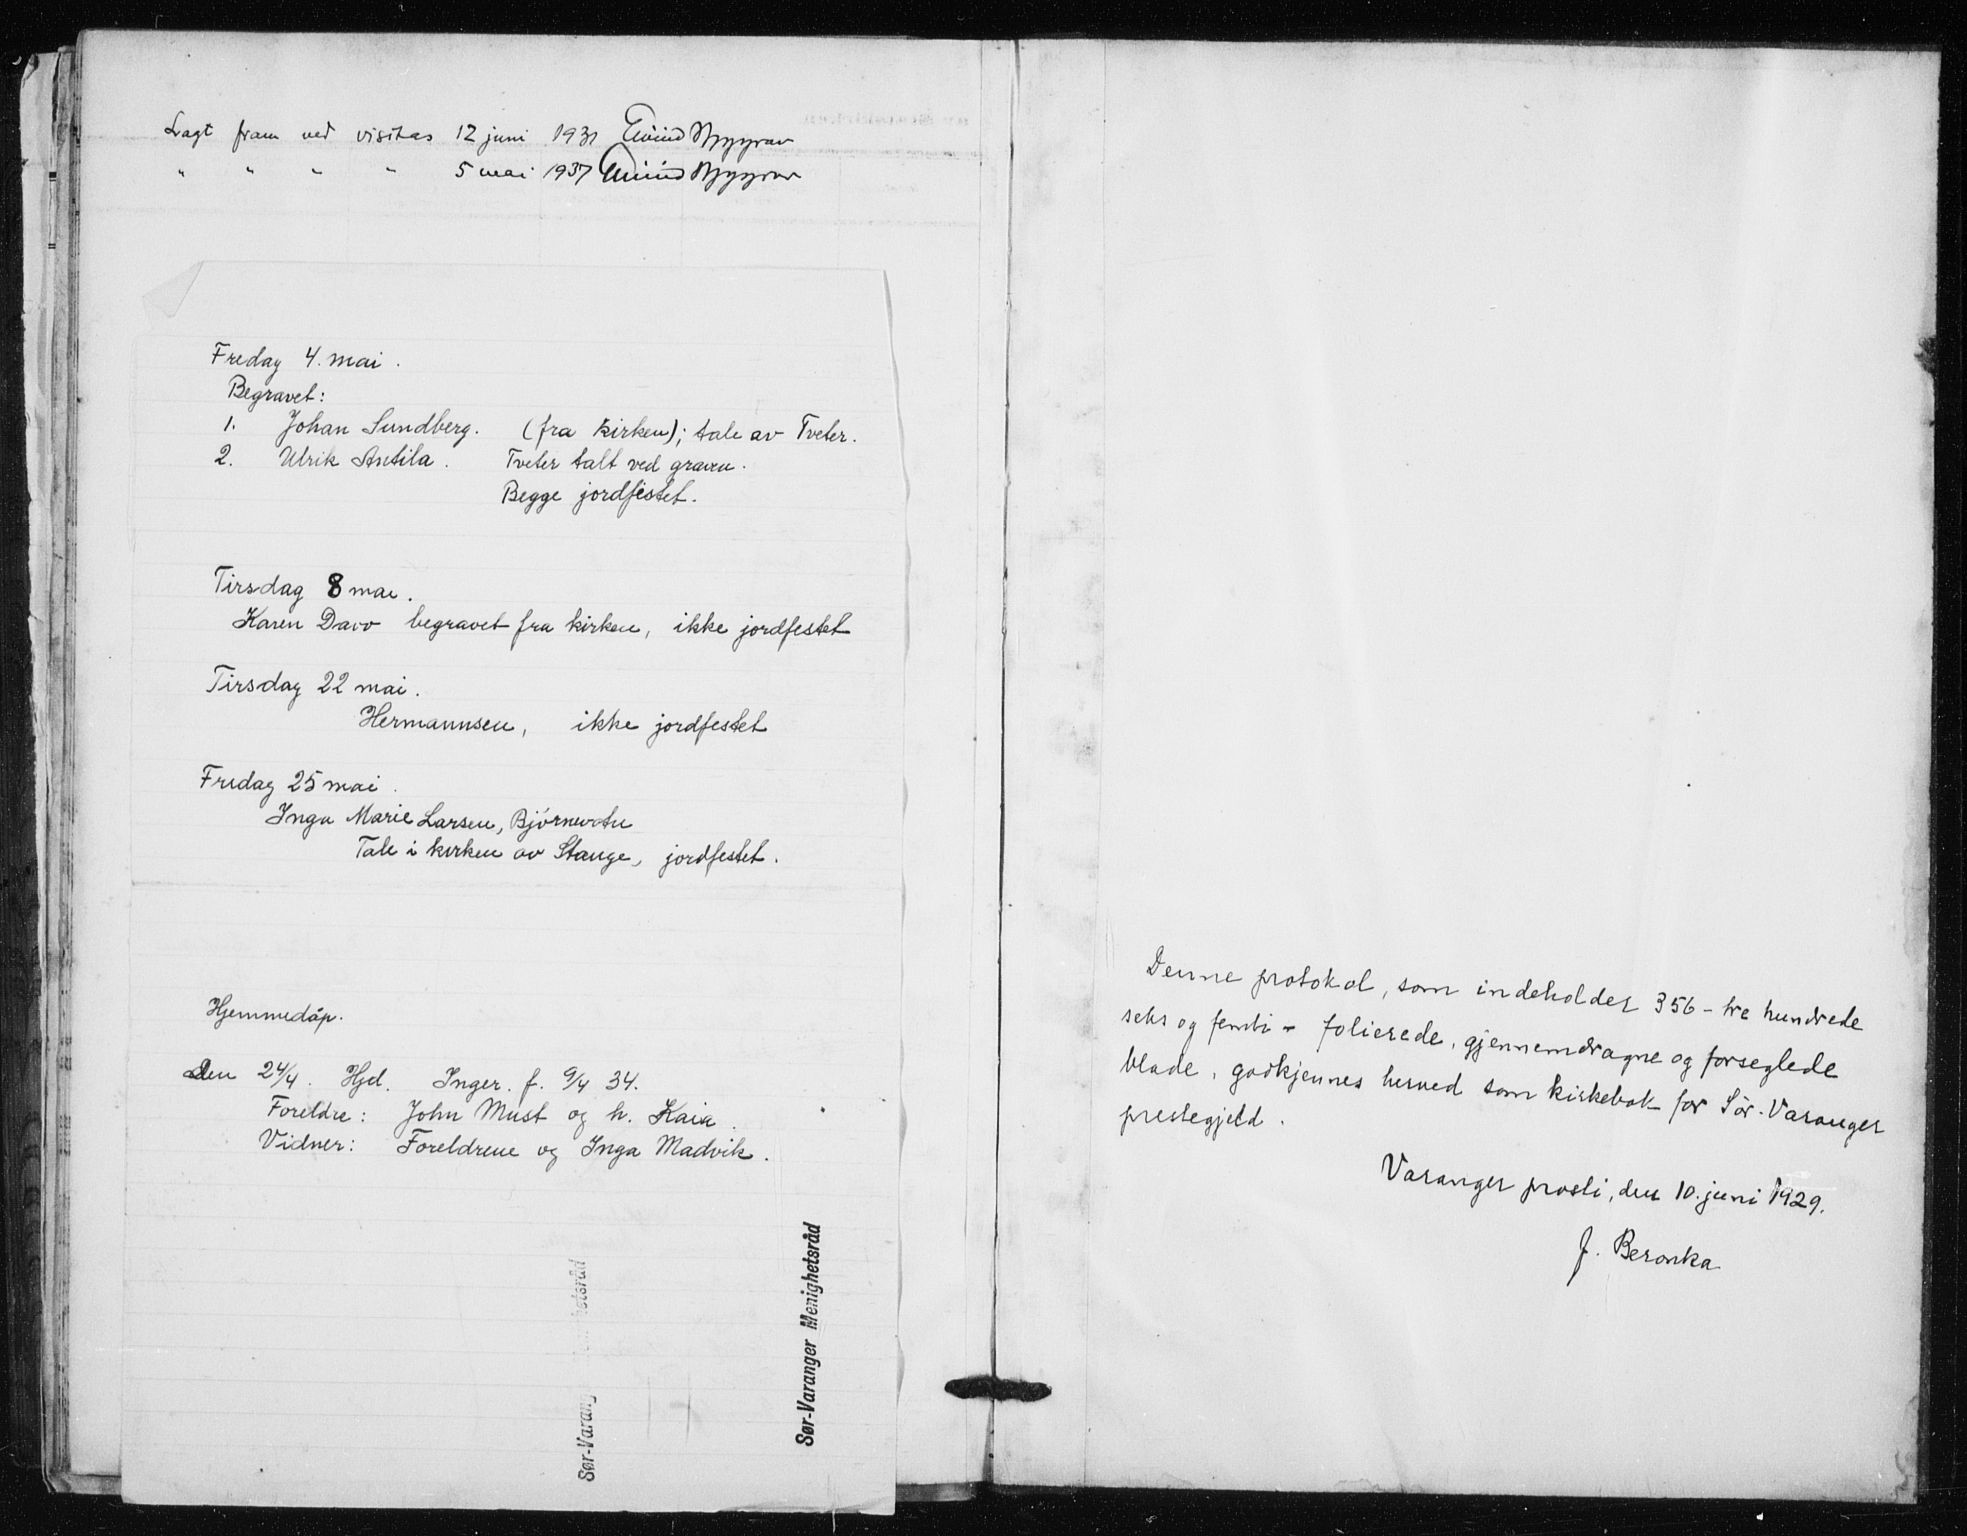 Lagt fram ved visitas 12 juni 1931 Eivind Berggrav
" " " " 5 mai 1937 Eivind Berggrav
Fredag 4. mai.
Begravet:
1. Johan Sundberg. (fra kirken); tale av Tveter.
2. Ulrik Antila. Tveter talt ved graven.
Begge jordfestet.
Tirsdag 8 mai.
Karen Davo begravet fra kirken, ikke jordfestet
Tirsdag 22 mai.
Hermannsen, ikke jordfestet
Fredag 25 mai.
Inga Marie Larsen, Bjørnevatn
Tale i kirken av Stange, jordfestet.
Hjemmedåp.
Den 24/4. Hjd. Inger. f. 9/4 34.
Foreldre: John Must og h. Kaia.
Vidner: Foreldrene og Inga Madvik.
Sør-Varang hetsråd
Sør-Varanger Menighetsråd
Denne protokol, som indeholder 356 - tre hundrede
seks og femti - folierede, gjennemdragne og forseglede
blade, godkjennes herved som kirkebok for Sør-Varanger
prestegjeld.
Varanger prosti, den 10. juni 1929.
J. Beronka